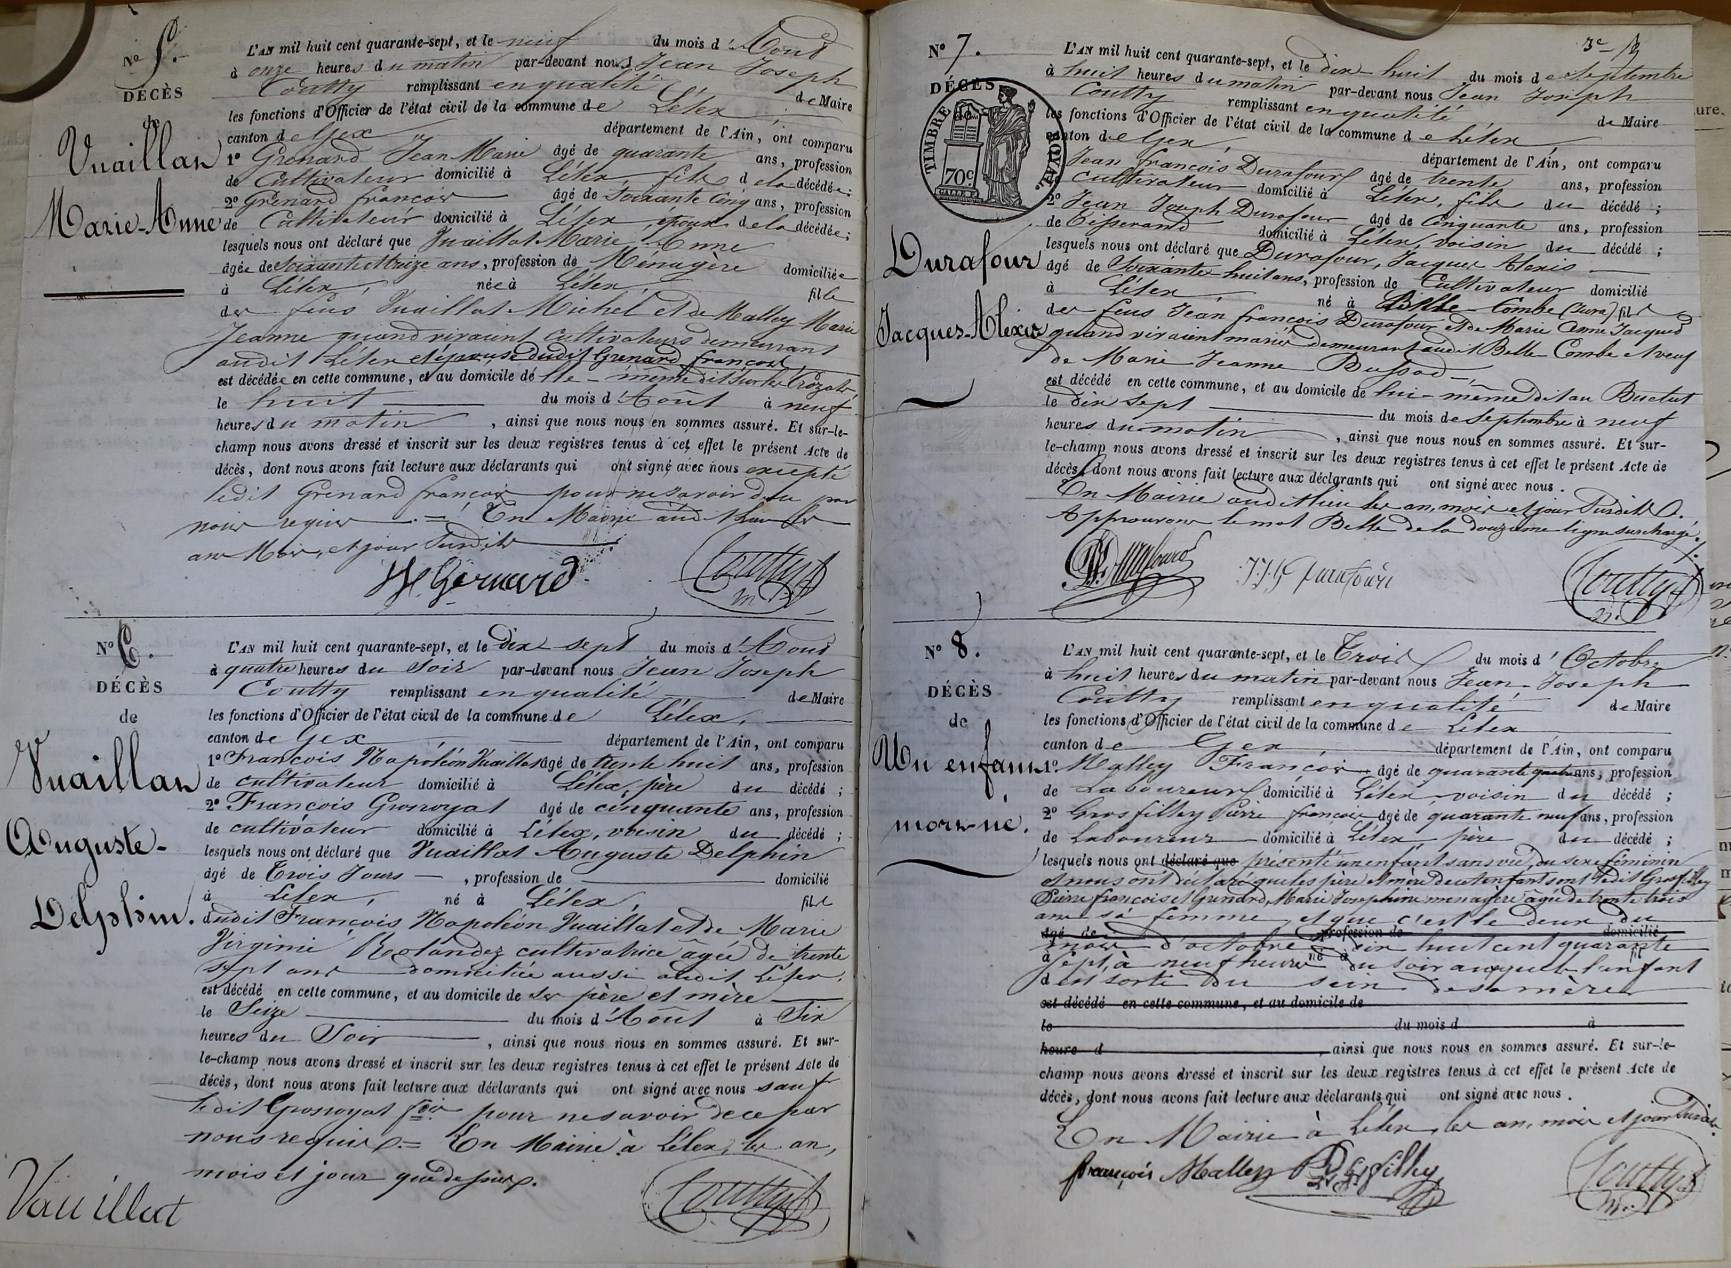 N° 5.
DÉCÈS
de
Vuaillat
Marie-Anne
L'AN mil huit cent quarante-sept, et le neuf du mois d'Aout
à onze heures du matin par-devant nous Jean Joseph
Coutty remplissant en qualité de Maire
les fonctions d'Officier de l'état civil de la commune de Lélex
canton de Gex département de l'Ain, ont comparu
1° Grenard Jean Marie âgé de quarante ans, profession
de Cultivateur domicilié à Lélex, fils de la décédée;
2° Grenard françois âgé de soixante cinq ans, profession
de Cultivateur domicilié à Lélex, époux de la décédée;
lesquels nous ont déclaré que Vuaillat Marie Anne
âgée de soixante et treize ans, profession de Ménagère domiciliée
à Lélex, née à Lélex, fille
des feus Vuaillat Michel et de Malley Marie
Jeanne quand vivaient cultivateurs demeurant
audit Lélex et épouse dudit Grenard françois
est décédée en cette commune, et au domicile de elle-même dit sur les
le huit du mois d'Août à neuf
heures du matin, ainsi que nous nous en sommes assuré. Et sur-le-
champ nous avons dressé et inscrit sur les deux registres tenus à cet effet le présent Acte de
décès, dont nous avons fait lecture aux déclarants qui ont signé avec nous excepté
ledit Grenard françois pour ne savoir de ce par
nous requis. = En Mairie audit lieu les
an Mois, et jour susdits
Coutty
m
N° 6.
DÉCÈS
de
Vuaillat
Auguste-
Delphin.
L'AN mil huit cent quarante-sept, et le dix sept du mois d'Aout
à quatre heures du Soir par-devant nous Jean Joseph
Coutty remplissant en qualité de Maire
les fonctions d'Officier de l'état civil de la commune de Lélex,
canton de Gex département de l'Ain, ont comparu
1° François Napoléon Vuaillat âgé de trente huit ans, profession
de cultivateur domicilié à Lélex, père du décédé;
2° François Gronoyat âgé de cinquante ans, profession
de cultivateur domicilié à Lélex, voisin du décédé;
lesquels nous ont déclaré que Vuaillat Auguste Delphin
âgé de Trois Jours, profession de domicilié
à Lélex, né à Lélex, fils
dudit François Napoléon Vuaillat et de Marie
Virginie Rolandez cultivatrice âgée de trente
sept ans domiciliée aussi audit Lélex,
est décédé en cette commune, et au domicile de ses père et mère
le Seize du mois d'Août à Six
heures du Soir, ainsi que nous nous en sommes assuré. Et sur-
le-champ nous avons dressé et inscrit sur les deux registres tenus à cet effet le présent Acte de
décès, dont nous avons fait lecture aux déclarants qui ont signé avec nous sauf
ledit Gronoyat fois pour ne savoir de ce par
nous requis. = En Mairie à Lélex, les an,
mois et jour que dessus.
Vauillat
Coutty
3e
N° 7.
DÉCÈS
de
TIMBRE ROYAL.
70c
Durafour
Jacques-Alexis
L'AN mil huit cent quarante-sept, et le dix-huit du mois de septembre
à huit heures du matin par-devant nous Jean Joseph
Coutty remplissant en qualité de Maire
les fonctions d'Officier de l'état civil de la commune de Lélex
canton de Gex département de l'Ain, ont comparu
Jean françois Durafour âgé de trente ans, profession
cultivateur domicilié à Lélex, fils du décédé;
2° Jean Joseph Durafour âgé de Cinquante ans, profession
de Tisserand domicilié à Lélex, voisin du décédé;
lesquels nous ont déclaré que Durafour, Jacques Alexis
âgé de Soixante-huit ans, profession de Cultivateur domicilié
à Lélex né à Belle-Combe (Jura) fils
des feus Jean françois Durafour et de Marie Anne Jacquod
quand vivaient mariés demeurant audit Belle-Combe et veuf
de Marie Jeanne Bussod
est décédé en cette commune, et au domicile de lui-même dit au
le dix sept du mois de septembre à neuf
heures du matin, ainsi que nous nous en sommes assuré. Et sur-
le-champ nous avons dressé et inscrit sur les deux registres tenus à cet effet le présent Acte de
décès, dont nous avons fait lecture aux déclarants qui ont signé avec nous.
En Mairie audit lieu les an, mois et jour susdits.
Approuvons le mot Belle de la douzième ligne surchargé.
J. J. Durafour
Coutty
m.
N° 8.
DÉCÈS
de
Un enfant
mort-né.
L'AN mil huit cent quarante-sept, et le Trois du mois d'Octobre
à huit heures du matin par-devant nous Jean-Joseph
Coutty remplissant en qualité de Maire
les fonctions d'Officier de l'état civil de la commune de Lélex
canton de Gex département de l'Ain, ont comparu
1° Malley François âgé de quarante quatre ans, profession
de Laboureur domicilié à Lélex, voisin du décédé;
2° Grosfilley Pierre françois âgé de quarante neuf ans, profession
de Laboureur domicilié à Lélex, père du décédé;
lesquels nous ont déclaré que présenté un enfant sans vie, du sexe féminin
et nous ont déclaré que les père et mère de cet enfant sont ledit Grosfilley
Pierre françois et Grenard, Marie Josephine ménagère âgée de trente trois
ans sa femme, et que c'est le deux du
âgé de profession de domicilié
mois d'octobre dix huit cent quarante
à né à fil
sept, à neuf heures du soir auquel l'enfant
d est sorti du sein de sa mère
est décédé en cette commune, et au domicile de
le du mois d à
heure d, ainsi que nous nous en sommes assuré. Et sur-le-
champ nous avons dressé et inscrit sur les deux registres tenus à cet effet le présent Acte de
décès, dont nous avons fait lecture aux déclarants qui ont signé avec nous.
En Mairie à Lélex, les an, mois et jour susdits.
françois Malley
Coutty
m.